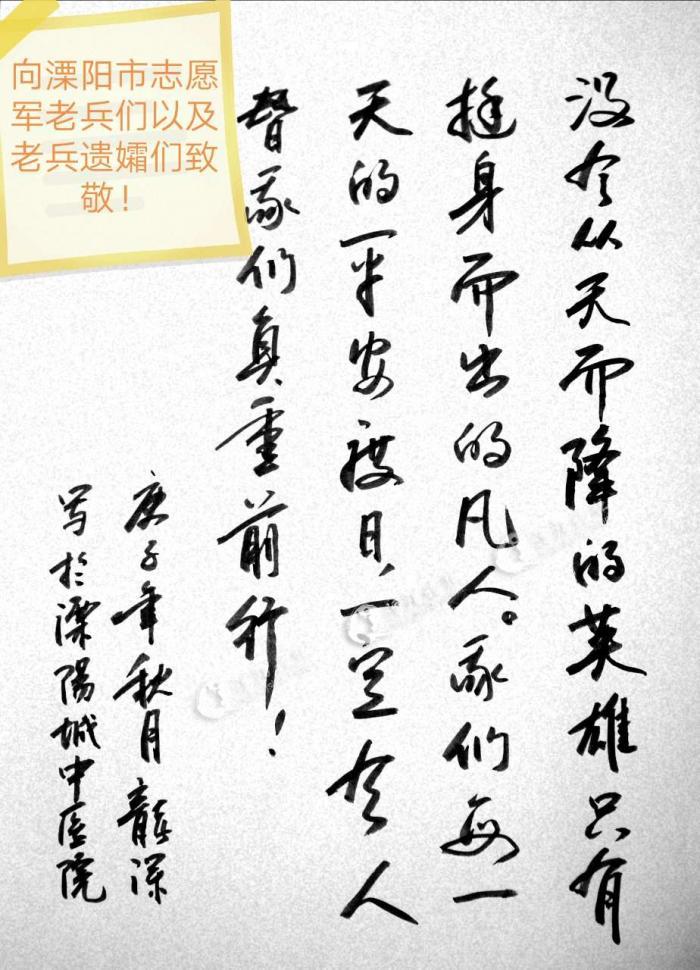 向溧阳市志愿
军老兵们以及
老兵遗孀们致
敬！
没有从天而降的英雄只有
挺身而出的凡人。我们每一
天的平安度日,一定有人
替我们负重前行！
庚子年秋月龍深
写於溧陽城中医院